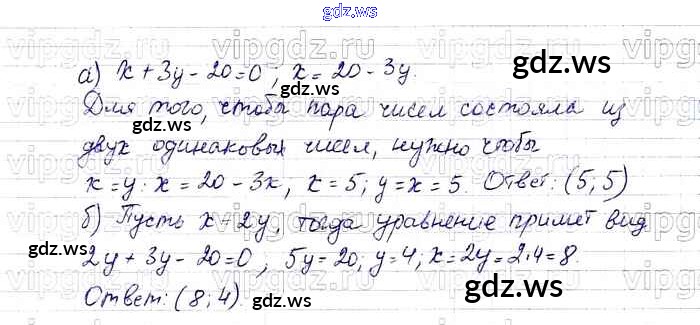 gdz.ru
а) x + 3y - 20 = 0; x = 20 - 3y.
gdz.ru
Для того, чтобы пара чисел состояла из
gdz.ru
двух одинаковых чисел, нужно чтобы
x = y: x = 20 - 3x, x = 5; y = x = 5. Ответ: (5; 5)
gdz.ru
б) Пусть x = 2y, тогда уравнение примет вид
gdz.ru
2y + 3y - 20 = 0, 5y = 20; y = 4; x = 2y = 2·4 = 8.
gdz.ru
Ответ: (8; 4).
gdz.ru